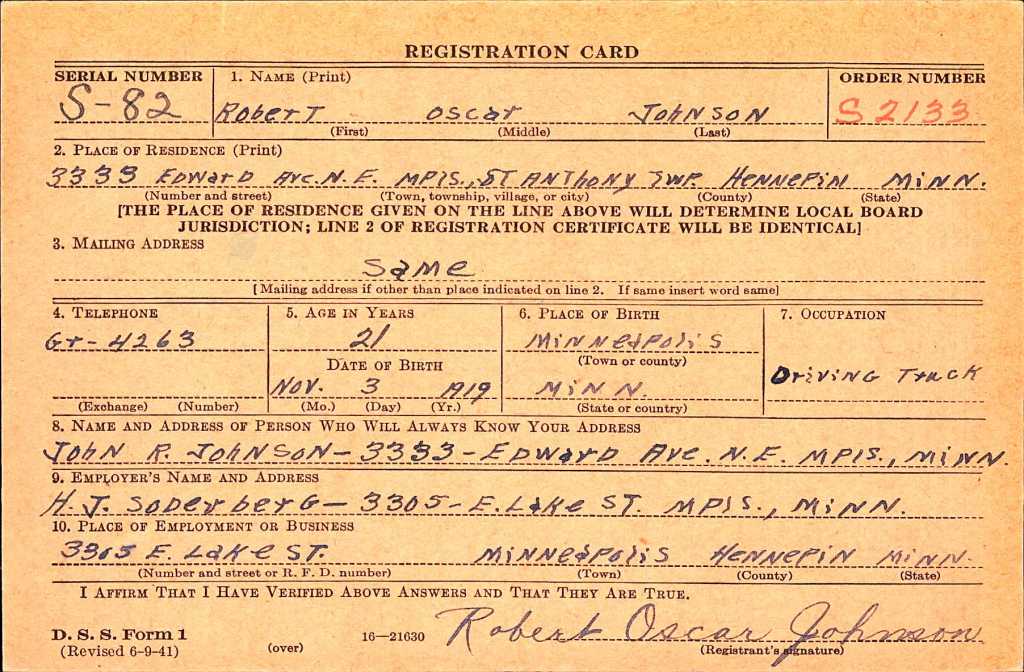 REGISTRATION CARD
SERIAL NUMBER 1. NAME (Print) ORDER NUMBER
S-82 Robert Oscar Johnson S 2133
(First) (Middle) (Last)
2. PLACE OF RESIDENCE (Print)
3333 Edward Ave. N.E. Mpls., St Anthony Twp. Hennepin Minn.
(Number and street) (Town, township, village, or city) (County) (State)
[THE PLACE OF RESIDENCE GIVEN ON THE LINE ABOVE WILL DETERMINE LOCAL BOARD
JURISDICTION; LINE 2 OF REGISTRATION CERTIFICATE WILL BE IDENTICAL]
3. MAILING ADDRESS
Same
[Mailing address if other than place indicated on line 2. If same insert word same]
4. TELEPHONE 5. AGE IN YEARS 6. PLACE OF BIRTH 7. OCCUPATION
Gr-4263 21 Minneapolis
(Town or county)
DATE OF BIRTH
Driving Truck
Nov. 3 1919 Minn.
(Exchange) (Number) (Mo.) (Day) (Yr.) (State or country)
8. NAME AND ADDRESS OF PERSON WHO WILL ALWAYS KNOW YOUR ADDRESS
John R. Johnson-3333-Edward Ave. N.E. Mpls., Minn.
9. EMPLOYER'S NAME AND ADDRESS
H. J. Soderberg-3305-E. Lake St. Mpls., Minn.
10. PLACE OF EMPLOYMENT OR BUSINESS
3305 E. Lake St. Minneapolis Hennepin Minn.
(Number and street or R. F. D. number) (Town) (County) (State)
I AFFIRM THAT I HAVE VERIFIED ABOVE ANSWERS AND THAT THEY ARE TRUE.
Robert Oscar Johnson
D. S. S. Form 1 16-21630
(Revised 6-9-41) (over) (Registrant's signature)